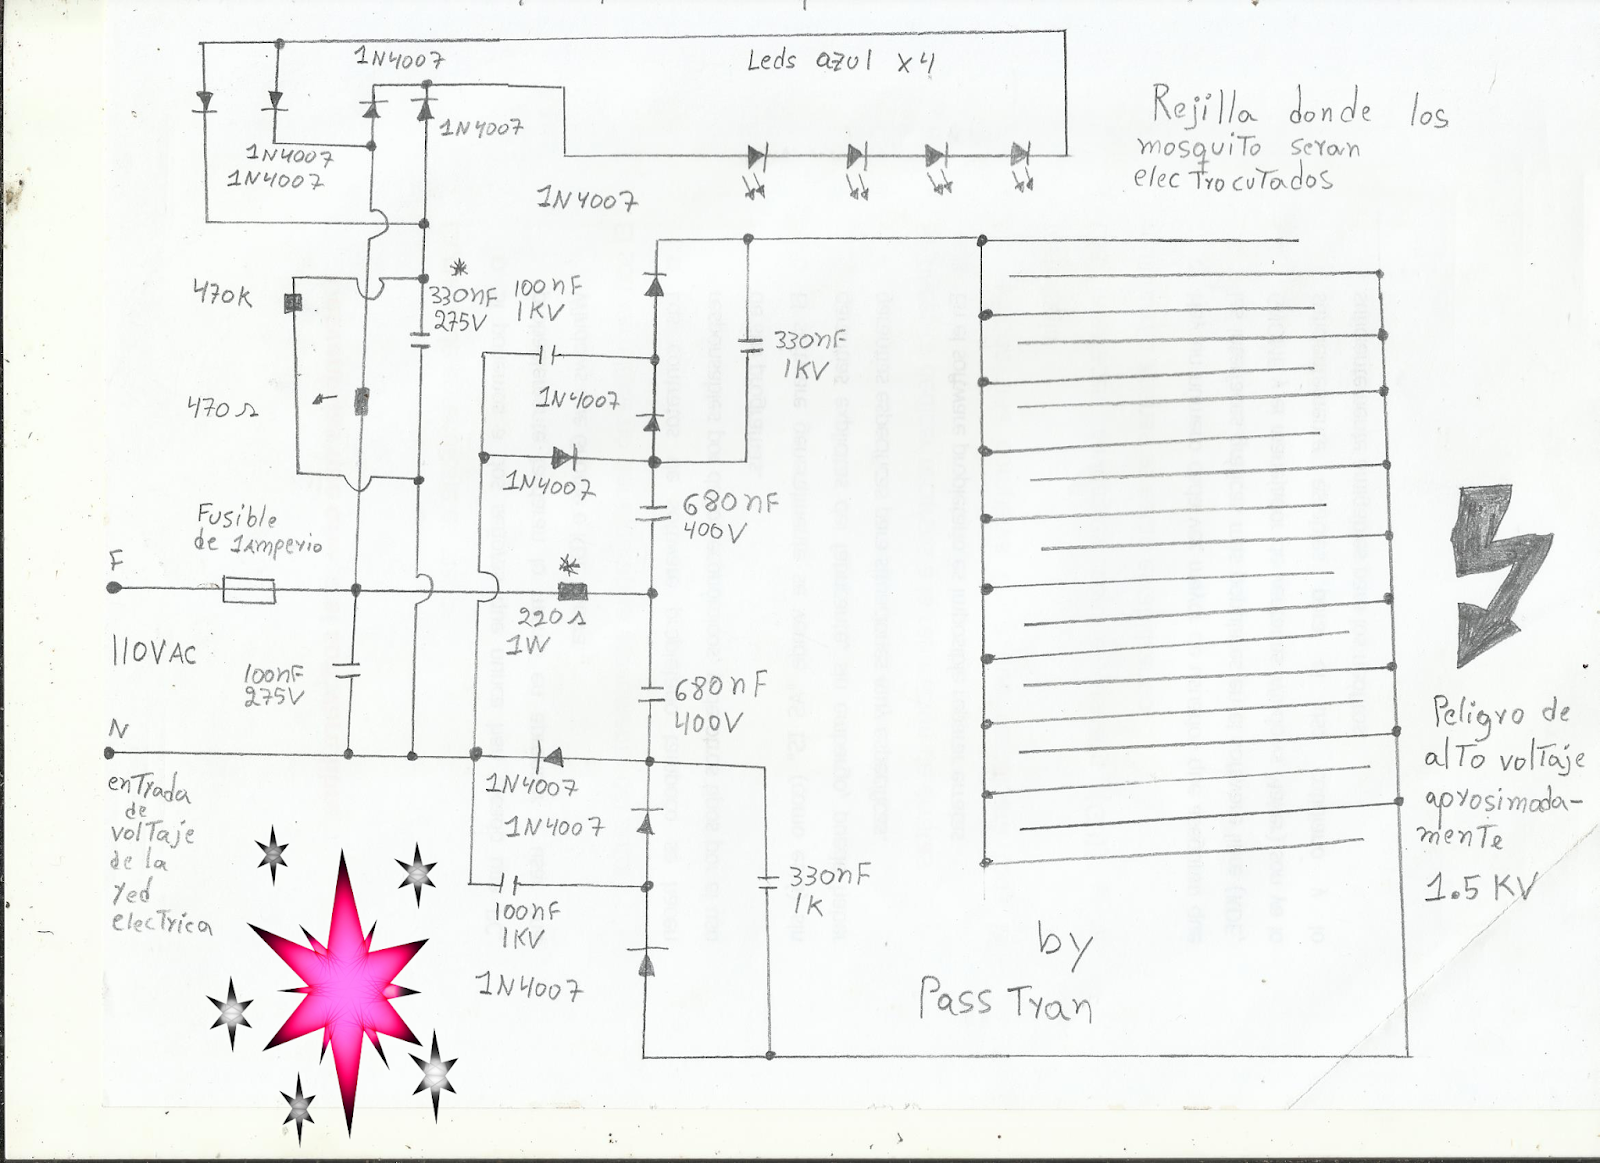 1N4007
Leds azul x4
1N4007
1N4007
1N4007
1N4007
Rejilla donde los
mosquito seran
electrocutados
470K
330nF
275V
100nF
1KV
330nF
1KV
1N4007
470Ω
1N4007
680nF
400V
Fusible
de 1amperio
F
220Ω
1W
110VAC
100nF
275V
680nF
400V
N
1N4007
1N4007
entrada
de
voltaje
de la
red
electrica
330nF
1K
100nF
1KV
1N4007
Peligro de
alto voltaje
aprosimada-
mente
1.5 KV
by
Pass Tran